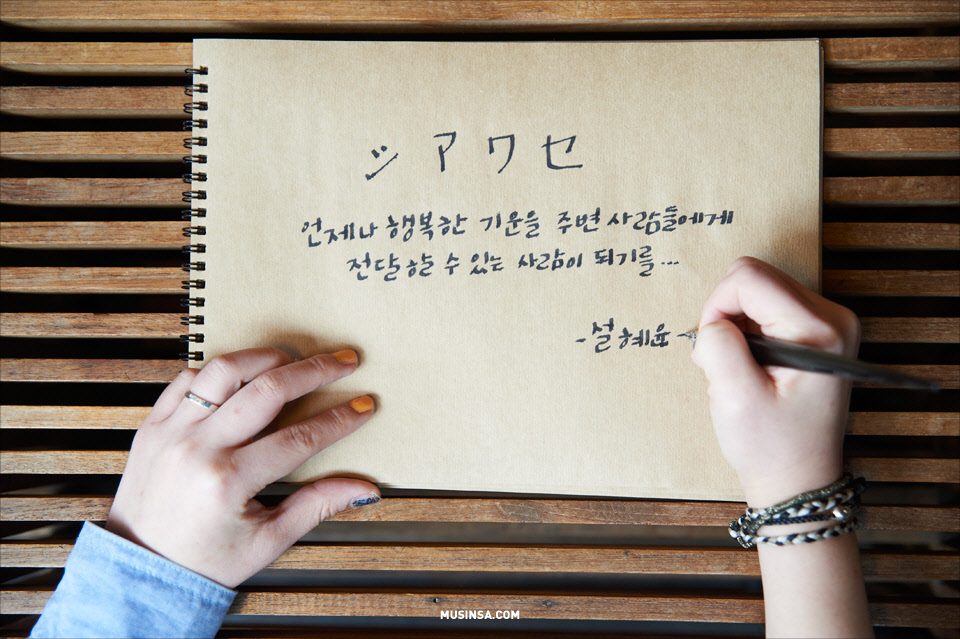 シアワセ
언제나 행복한 기운을 주변 사람들에게
전달할 수 있는 사람이 되기를...
-설혜윤-
MUSINSA.COM